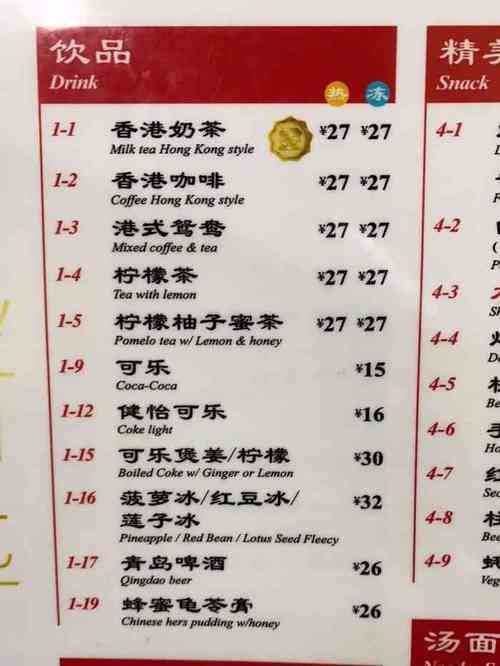 饮品
Drink
热 冻
1-1 香港奶茶 ¥27 ¥27
Milk tea Hong Kong style
1-2 香港咖啡 ¥27 ¥27
Coffee Hong Kong style
1-3 港式鸳鸯 ¥27 ¥27
Mixed coffee & tea
1-4 柠檬茶 ¥27 ¥27
Tea with lemon
1-5 柠檬柚子蜜茶 ¥27 ¥27
Pomelo tea w/ Lemon & honey
1-9 可乐 ¥15
Coca-Coca
1-12 健怡可乐 ¥16
Coke light
1-15 可乐煲姜/柠檬 ¥30
Boiled Coke w/ Ginger or Lemon
1-16 菠萝冰/红豆冰/ ¥32
莲子冰
Pineapple / Red Bean / Lotus Seed Fleecy
1-17 青岛啤酒 ¥26
Qingdao beer
1-19 蜂蜜龟苓膏 ¥26
Chinese hers pudding w/honey
精美
Snack
4-1
4-2
4-3
4-4
4-5
4-6
4-7
4-8
4-9
汤面